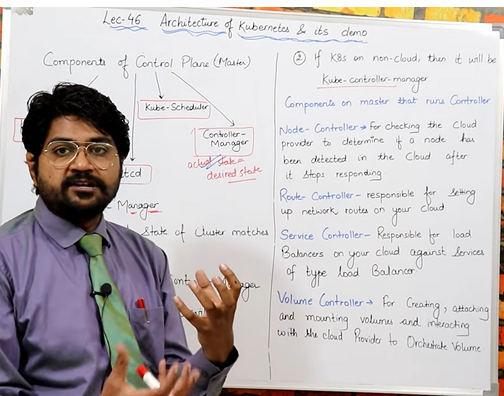 Lec-46 Architecture of Kubernetes & its demo
Components of Control Plane (Master)
Kube-Scheduler
Controller-
Manager
actual state =
desired state
etcd
Manager
State of Cluster matches
② If K8s on non-cloud, then it will be
Kube-controller-manager
Components on master that runs Controller
Node-Controller → For checking the Cloud
provider to determine if a node has
been detected in the Cloud after
it stops responding
Route-Controller - responsible for setting
up network routes on your cloud
Service Controller - Responsible for load
Balancers on your cloud against Services
of type load Balancer
Volume Controller → For Creating, attaching
and mounting volumes and interacting
with the cloud Provider to Orchestrate Volume